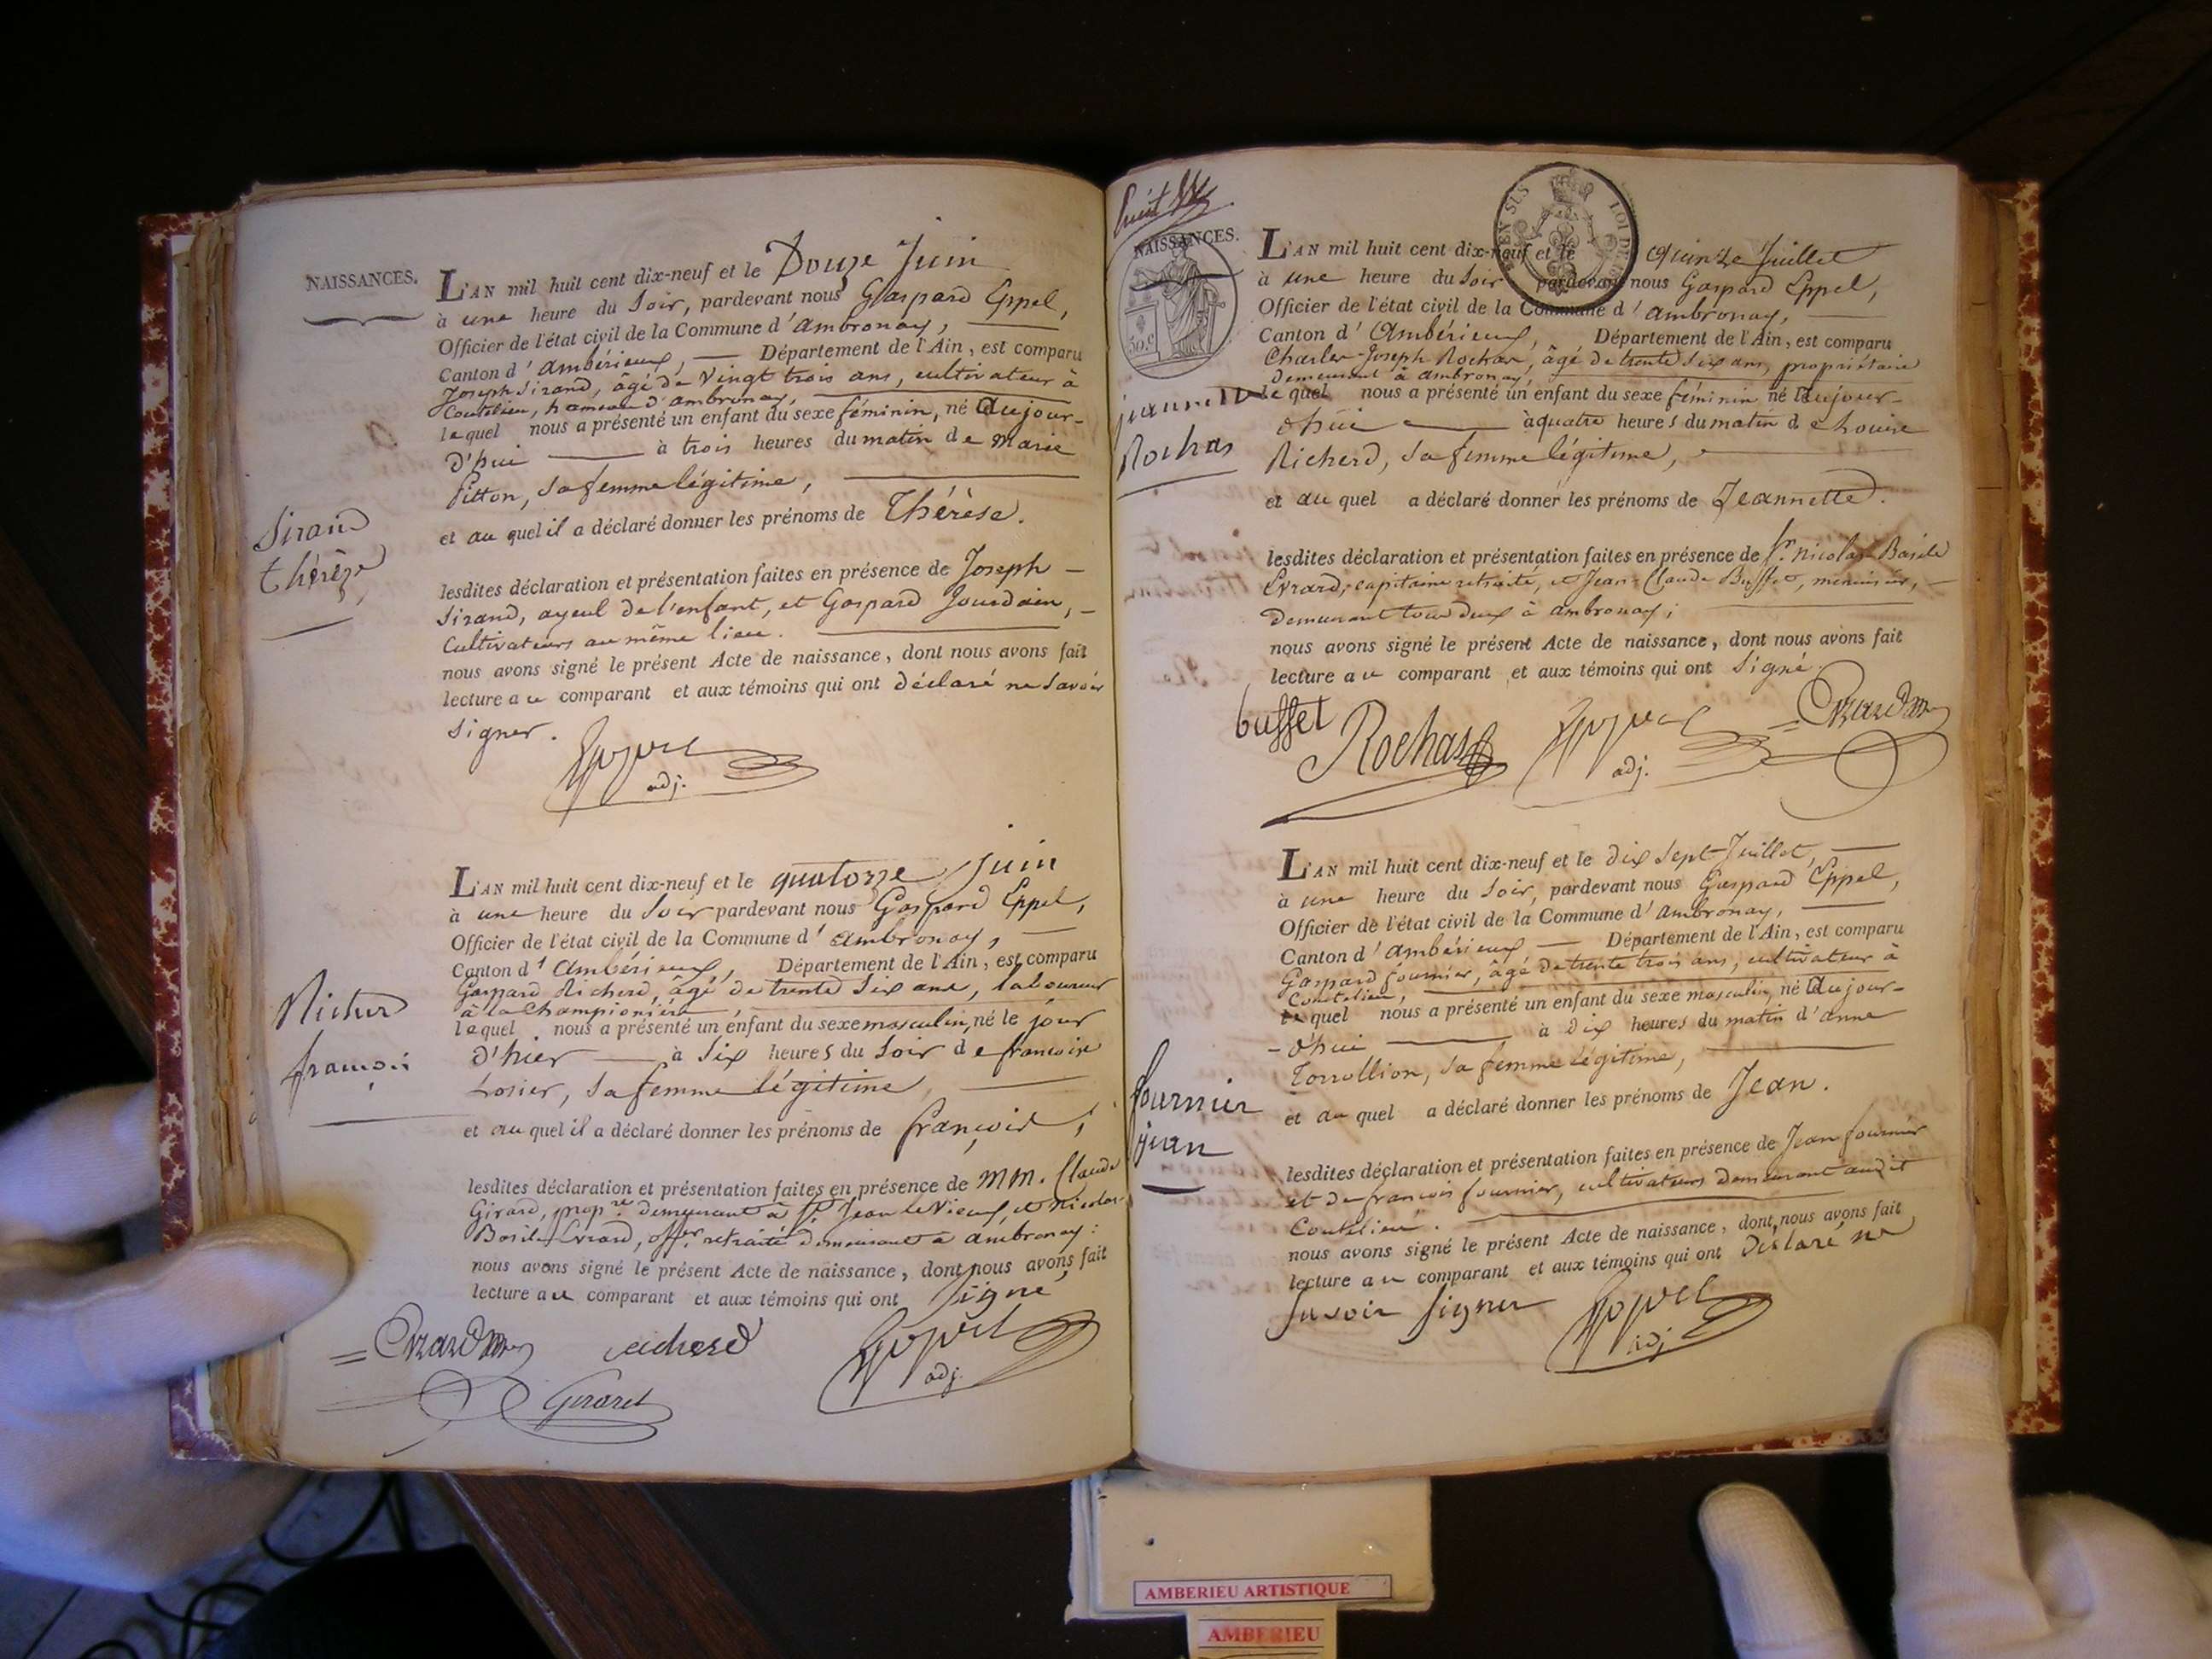 NAISSANCES.
L'AN mil huit cent dix-neuf et le Douze Juin
à une heure du Soir, pardevant nous Gaspard Eppel,
Officier de l'état civil de la Commune d'ambronay,
Canton d'ambérieux, Département de l'Ain, est comparu
Joseph Sirand, âgé de Vingt trois ans, cultivateur à
Coutelieu, hameau d'ambronay,
lequel nous a présenté un enfant du sexe féminin, né Aujour-
d'hui à trois heures du matin de Marie
Pitton, Sa femme légitime,
et au quel il a déclaré donner les prénoms de Thérèse.
Sirand
thérèze
lesdites déclaration et présentation faites en présence de Joseph
Sirand, ayeul de l'enfant, et Gaspard Jourdain,
Cultivateurs au même lieu.
nous avons signé le présent Acte de naissance, dont nous avons fait
lecture au comparant et aux témoins qui ont déclaré ne Savoir
Signer.
Eppel
adj.
L'AN mil huit cent dix-neuf et le quatorze juin
à une heure du Soir pardevant nous Gaspard Eppel,
Officier de l'état civil de la Commune d'ambronay,
Canton d'Ambérieux, Département de l'Ain, est comparu
Gaspard Richerd, âgé de trente Six ans, laboureur
à la Championière
lequel nous a présenté un enfant du sexe masculin, né le jour
d'hier à Six heures du Soir de francoise
Losier, Sa femme légitime,
et au quel il a déclaré donner les prénoms de françois,
Richerd
françois
lesdites déclaration et présentation faites en présence de MM. Claude
Girard, propre demeurant à St Jean le Vieux, et Nicolas
Basile Evrard, offer retraité demeurant à ambronay:
nous avons signé le présent Acte de naissance, dont nous avons fait
lecture au comparant et aux témoins qui ont Signé
Evrard Richerd Eppel
adj.
Girard
huit
NAISSANCES.
50.c
EN SUS LOI DE
L'AN mil huit cent dix-neuf et le quinze Juillet
à une heure du Soir pardevant nous Gaspard Eppel,
Officier de l'état civil de la Commune d'ambronay,
Canton d'Ambérieux, Département de l'Ain, est comparu
Charles-Joseph Rochas, âgé de trente Six ans, propriétaire
demeurant à ambronay,
lequel nous a présenté un enfant du sexe féminin né Aujour-
d'hui à quatre heures du matin de Louise
Richerd, Sa femme légitime,
et au quel a déclaré donner les prénoms de Jeannette.
jeannette
Rochas
lesdites déclaration et présentation faites en présence de Sr. Nicolas Basile
Evrard, capitaine retraité, et Jean-Claude Buffet, menuisier,
demeurant tous deux à ambronay;
nous avons signé le présent Acte de naissance, dont nous avons fait
lecture au comparant et aux témoins qui ont Signé.
buffet Rochas Eppel Evrard
adj.
L'AN mil huit cent dix-neuf et le dix Sept Juillet,
à une heure du Soir, pardevant nous Gaspard Eppel,
Officier de l'état civil de la Commune d'ambronay,
Canton d'ambérieux Département de l'Ain, est comparu
Gaspard fournier, âgé de trente trois ans, cultivateur à
Coutelieu,
lequel nous a présenté un enfant du sexe masculin, né Aujour-
d'hui à dix heures du matin d'anne
Torrollion, Sa femme légitime,
et au quel a déclaré donner les prénoms de Jean.
fournier
jean
lesdites déclaration et présentation faites en présence de Jean fournier
et de françois fournier, cultivateurs demeurant audit
Coutelieu.
nous avons signé le présent Acte de naissance, dont nous avons fait
lecture au comparant et aux témoins qui ont déclaré ne
Savoir Signer Eppel
adj
AMBERIEU ARTISTIQUE
AMBERIEU